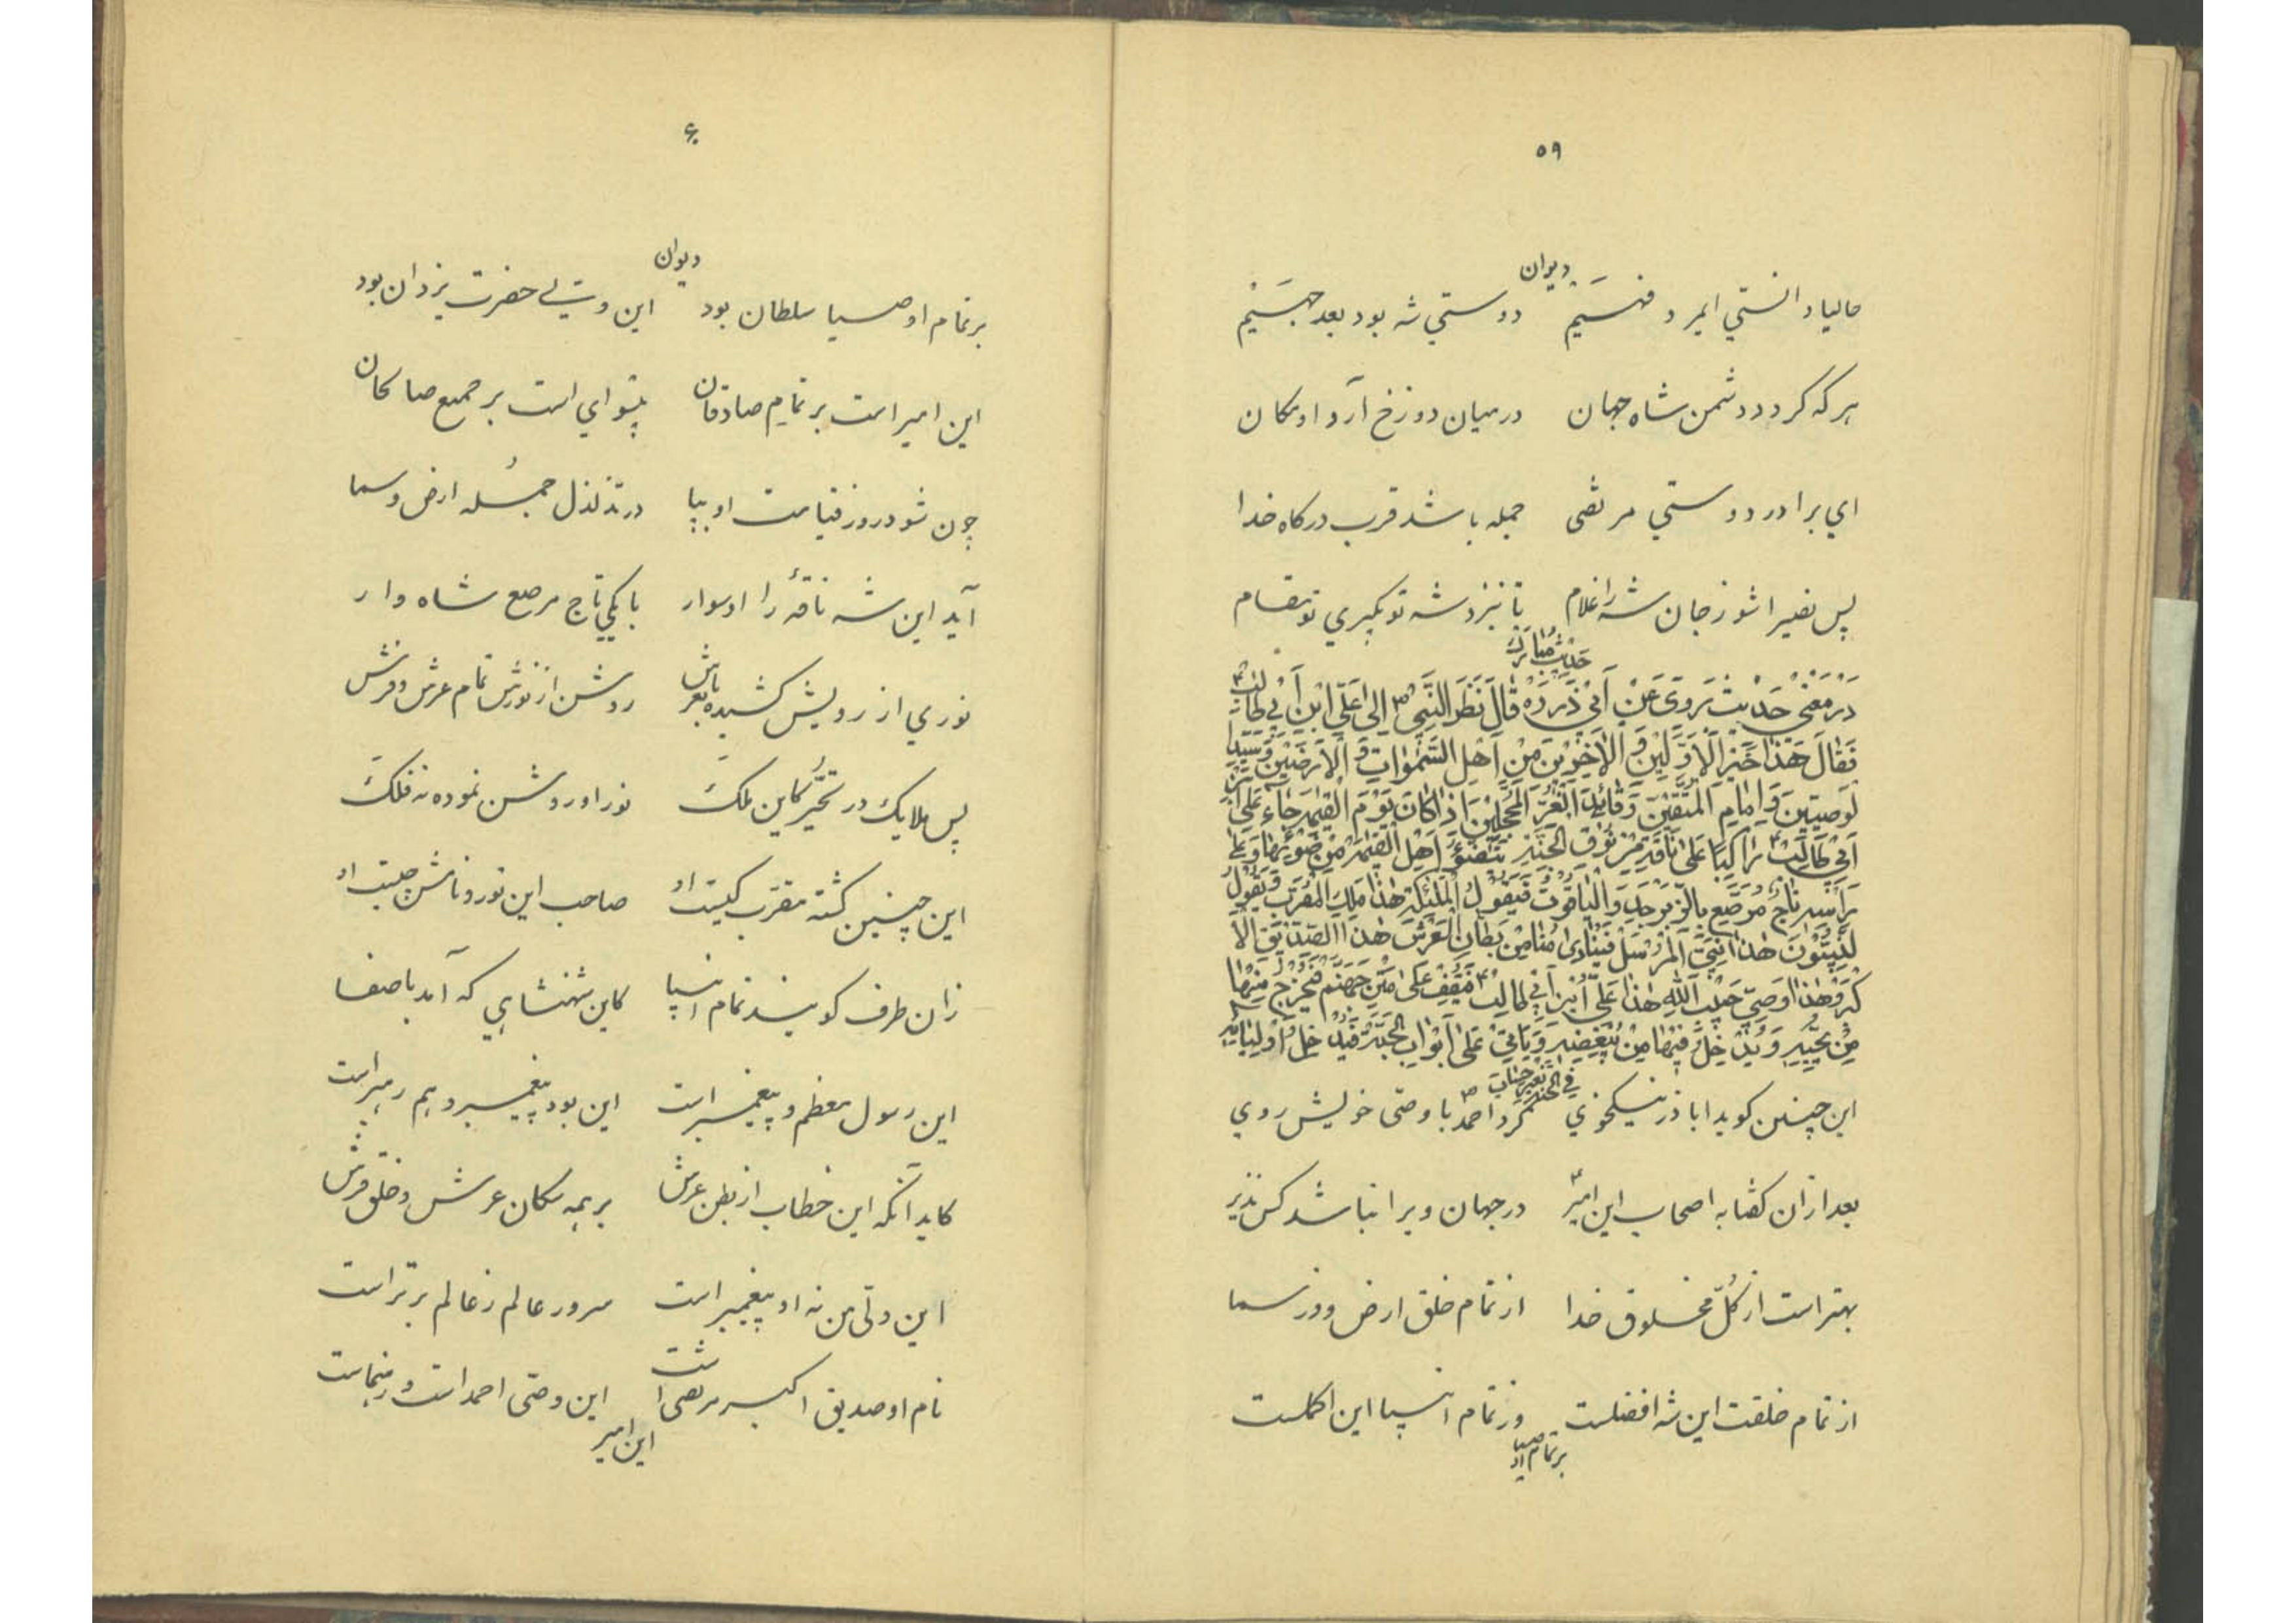 ۵۹
دیوان
حالیا دانستی ایمرد فهیم دوستی شه بود بعد جسیم
هر که گردد دشمن شاه جهان در میان دوزخ آرد او مکان
ای برادر دوستی مرتضی جمله باشد قرب درگاه خدا
پس نصیرا شو ز جان شه را غلام تا بنزد شه تو بگیری تو مقام
حَدیث مُبارَک
دَر مَعْنیِ حَدیث یَروی عَنْ اَبی ذَر رَه قالَ نَظَرَ النَّبِی ص اِلی عَلّی ابْنِ اَبی طالِب ع
فَقالَ هَذا خَیْرُ الْاَوَّلینَ وَ الْاخَرینَ مِنْ اَهْلِ السَّمٰوٰاتِ وَ الْاَرَضینَ وَ سَیِّدا
لوَصِیّینَ وَ اِمامِ الْمُتَّقینَ وَ قائِدِ الْغُرِّ الْمُحَجَّلینَ اِذا کانَ یَوْمَ الْقِیٰمَةِ جاءَ عَلی ابْنِ
اَبی طالِب ع راکِبًا عَلی ناقَةٍ مِنْ نُوقِ الْجَنَّةِ تَتَضَوَّءُ اَهْلَ الْقِیٰمَةِ مِنْ ضَوْئِها وَ عَلی
رَأسِهِ تاجٌ مُرَصَّعٍ بِالزَّبَرْجَدِ وَ الْیاقُوتِ فَیَقُولُ الْمَلٰئِکَةُ هٰذا مَلِکُ الْمُقَرَّب وَ یَقُولُ
لنَّبِیّوُنَ هٰذا نَبِیَّ الْمُرْسَل فَیُنادی مُنا مِنْ بَطٰانِ الْعَرْش هٰذا الصِّدّیقُ الْاَ
کْبَر وَ هٰذا وَصِیّ حَبیْبُ اللهِ هٰذا عَلّی ابْنِ اَبی طالِب ع فَیَقِفُ عَلی مَتْنِ جَهَنَّم فَیُخْرِجُ مِنْها
مَنْ یُحِبُّهِ وَ یُدْخِلُ فیْها مَنْ یُبْغِضِهِ وَ یَاتی عَلی اَبْوابِ الْجَنَّةِ فَیُدْخِلُ اَوْلِیائِهِ
فِی الْجَنَّةِ بِغَیْرِ حِسٰابَ
این چنین گوید اباذر نیکخوی کرد احمد ص با وصی خویش روی
بعد از ان گفتا به اصحاب این امیر در جهان ویرا نباشد کس نذیر
بهتر است از کلّ مخلوق خدا از تمام خلق ارض و وز سما
از تمام خلقت این شه افضلست وز تمام انبیا این اکملست
بر تمام اوصیا
۶۰
دیوان
بر تمام اوصیا سلطان بود این وصّیِ حضرت یزدان بود
این امیر است بر تمام صادقان پیشوای است بر جمیع صالحان
چون شود روز قیامت او بپا در تذلذل جمله ارض و سما
آید این شه ناقهٔ را او سوار با یکی تاج مرصع شاه وار
نوری از رویش کشیده بعر باش روشن از نورش تمام عرش و فرش
پس ملایک در تحیّر کاین ملک نور او روشن نموده نه فلک
این چنین گشته مقرّب کیست او صاحب این نور و نامش چیست او
زان طرف گویند تمام انبیا کاین شهنشاهی که آمد با صفا
این رسول معظم و پیغمبر است این بود پیغمبر و هم رهبر است
کاید آنگه این خطاب از بطن عرش بر همه مکان عرش و خلق فرش
این ولّی من نه او پیغمبر است سرور عالم ز عالم برتر است
نام او صدیق اکبر مرتضی است این وصّی احمد است و رهنماست
این امیر